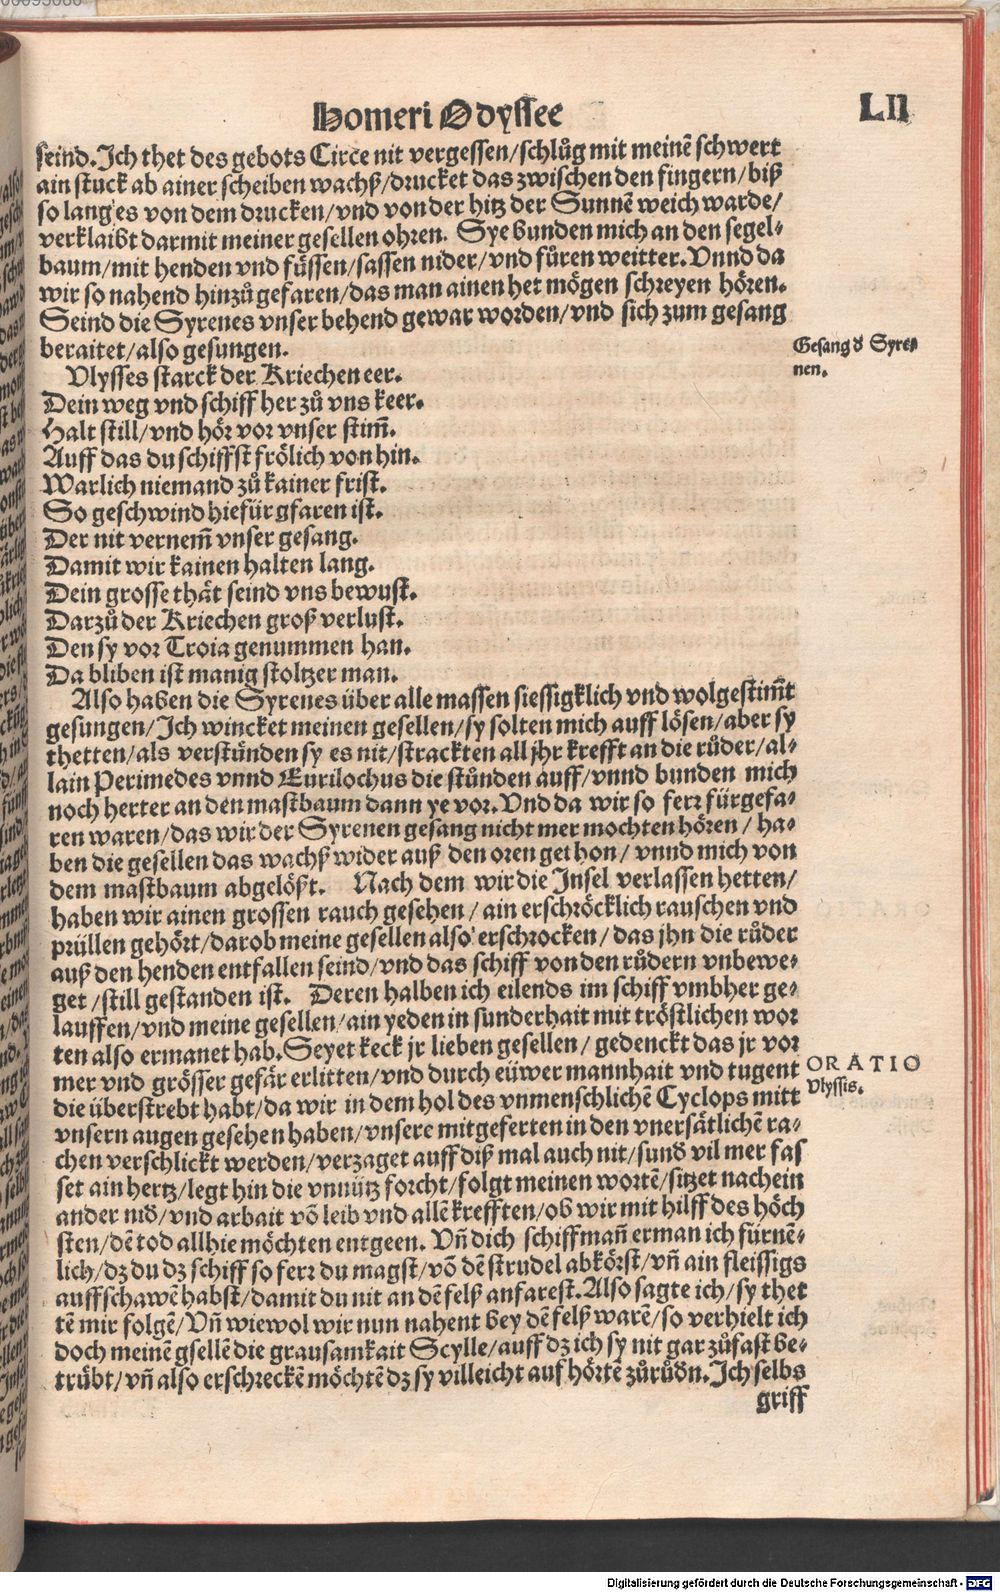 Homeri Odyssee LII
seind. Ich thet des gebots Circe nit vergessen/schlůg mit meinē schwert
ain stuck ab ainer scheiben wachß/drucket das zwischen den fingern/biß
so lang es von dem drucken/vnd von der hitz der Sunnē weich warde/
verklaibt darmit meiner gesellen ohren. Sye bunden mich an den segel-
baum/mit henden vnd füssen/sassen nider/vnd fůren weitter. Vnnd da
wir so nahend hinzů gefaren/das man ainen het mögen schreyen hören.
Seind die Syrenes vnser behend gewar worden/vnd sich zum gesang
beraitet/also gesungen.
Gesang d̕ Syre-
nen.
Vlysses starck der Kriechen eer.
Dein weg vnd schiff her zů vns keer.
Halt still/vnd hör vor vnser stim̄.
Auff das du schiffst frölich von hin.
Warlich niemand zů kainer frist.
So geschwind hiefür gfaren ist.
Der nit vernem̄ vnser gesang.
Damit wir kainen halten lang.
Dein grosse thät seind vns bewust.
Darzů der Kriechen groß verlust.
Den sy vor Troia genummen han.
Da bliben ist manig stoltzer man.
Also haben die Syrenes über alle massen siessigklich vnd wolgestim̄t
gesungen/Ich wincket meinen gesellen/sy solten mich auff lösen/aber sy
thetten/als verstünden sy es nit/strackten all jhr krefft an die růder/al-
lain Perimedes vnnd Eurilochus die stůnden auff/vnnd bunden mich
noch herter an den mastbaum dann ye vor. Vnd da wir so ferr fürgefa-
ren waren/das wir der Syrenen gesang nicht mer mochten hören/ ha-
ben die gesellen das wachß wider auß den oren gethon/ vnnd mich von
dem mastbaum abgelößt. Nach dem wir die Insel verlassen hetten/
haben wir ainen grossen rauch gesehen/ ain erschröcklich rauschen vnd
prüllen gehört/darob meine gesellen also erschrocken/ das jhn die růder
auß den henden entfallen seind/vnd das schiff von den růdern vnbewe-
get/still gestanden ist. Deren halben ich eilends im schiff vmbher ge-
lauffen/vnd meine gesellen/ain yeden in sunderhait mit tröstlichen wor
ten also ermanet hab. Seyet keck jr lieben gesellen/ gedenckt das jr vor
mer vnd grösser gefär erlitten/vnd durch eüwer mannhait vnd tugent
ORATIO
Vlyssis.
die überstrebt habt/da wir in dem hol des vnmenschlichē Cyclops mitt
vnsern augen gesehen haben/vnsere mitgeferten in den vnersätlichē ra-
chen verschlickt werden/verzaget auff diß mal auch nit/sund̕ vil mer fas
set ain hertz/legt hin die vnnütz forcht/folgt meinen wortē/sitzet nach ein
ander nid̕/vnd arbait vō leib vnd allē krefften/ob wir mit hilff des höch
sten/dē tod allhie möchten entgeen. Vn̄ dich schiffman̄ erman ich fürnē-
lich/dz du dz schiff so ferr du magst/vō dē strudel abkörst/vn̄ ain fleissigs
auffschawē habst/damit du nit an dē felß anfarest. Also sagte ich/sy thet
tē mir folgē/Vn̄ wiewol wir nun nahent bey dē felß warē/so verhielt ich
doch meinē gsellē die grausamkait Scylle/auff dz ich sy nit gar zůfast be-
trübt/vn̄ also erschreckē möchtē dz sy villeicht auf hörtē zůrůd̕n. Ich selbs
griff
Digitalisierung gefördert durch die Deutsche Forschungsgemeinschaft - DFG